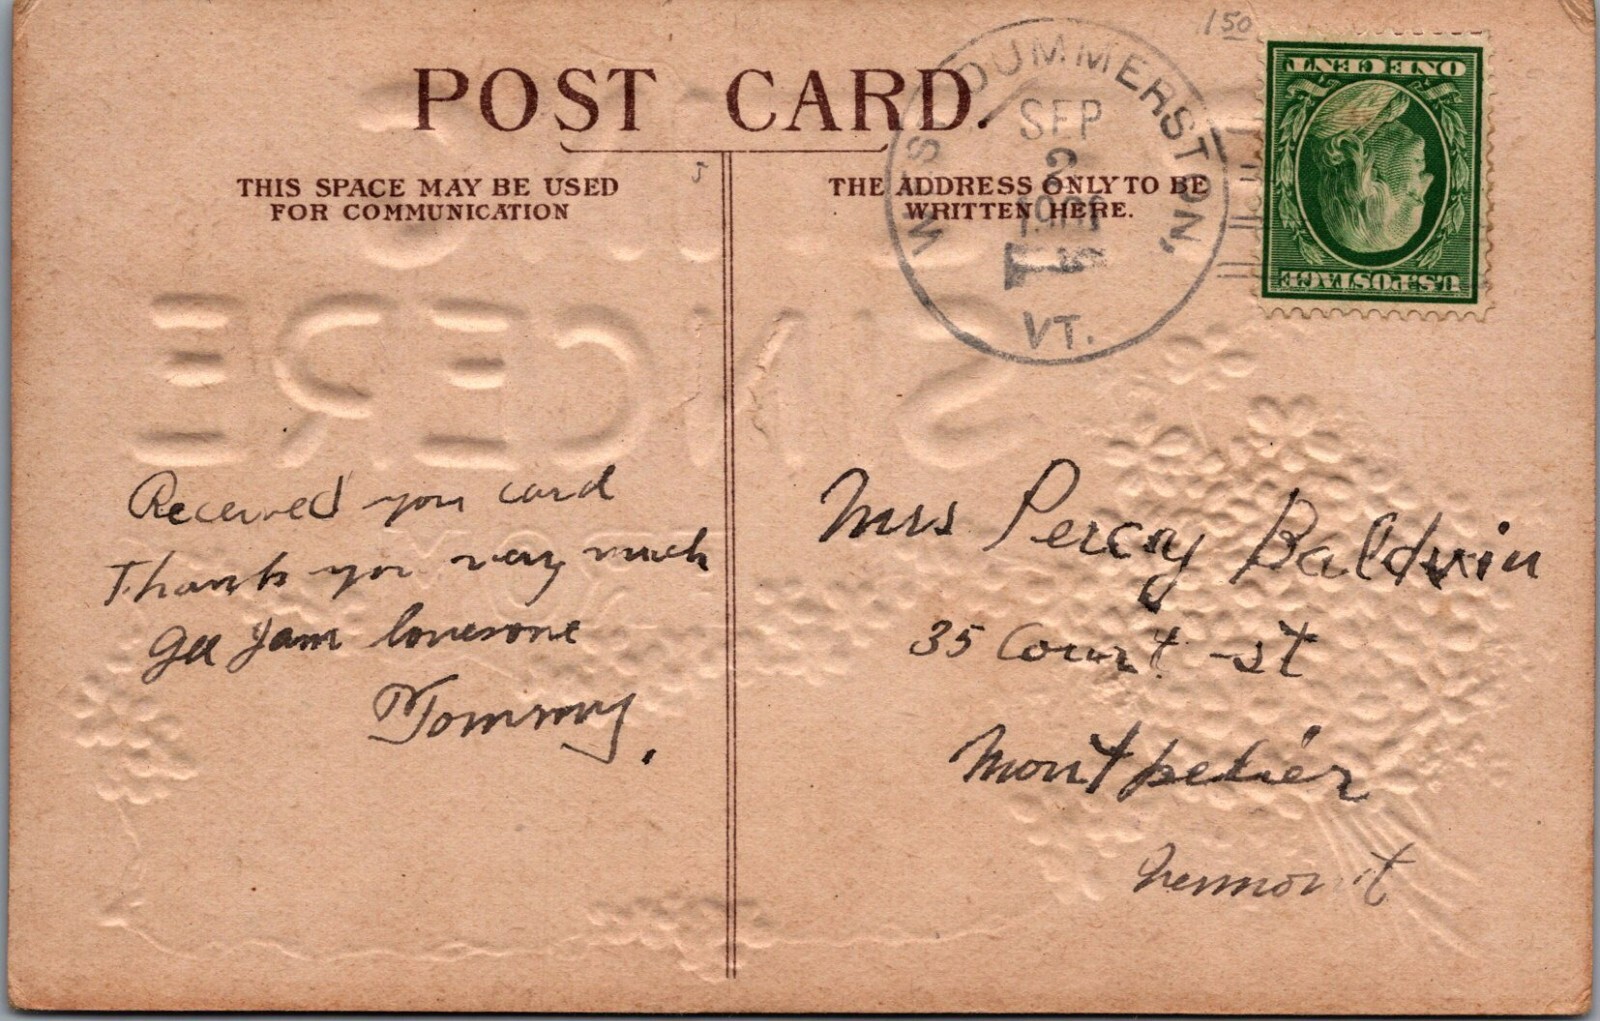 150
POST CARD.
THIS SPACE MAY BE USED
FOR COMMUNICATION
THE ADDRESS ONLY TO BE
WRITTEN HERE.
WEST DUMMERSTON,
SEP
2
VT.
ONE CENT
U.S. POSTAGE
SINCERE
Received you card
Thank you very much
gee I am lonesome
Tommy.
Mrs Percy Baldwin
35 Court st
Montpelier
Vermont